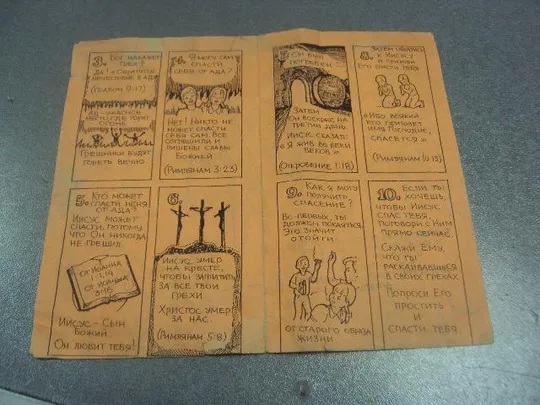 3. Бог накажет
грех?
Да! «Обратятся
нечестивые в ад»
(Псалом 9:17)
Ад – ужасное
место, где горит
огонь.
Грешники будут
гореть вечно
4. Я могу сам
спасти
себя от ада?
Нет! Никто не
может спасти
себя сам. Все
согрешили и
лишены славы
Божией
(Римлянам 3:23)
5. Кто может
спасти меня
от ада?
Иисус может!
спасти, потому
что Он никогда
не грешил.
От Иоанна
1:14
От Иоанна
3:16
Иисус – Сын
Божий.
Он любит тебя!
6.
Иисус умер
на кресте,
чтобы заплатить
за все твои
грехи
Христос умер
за нас.
(Римлянам 5:8)
7. Он был
погребён.
Затем
Он воскрес на
третий день
Иисус сказал:
«Я жив во веки
веков»
(Откровение 1:18)
8. Затем
к Иисусу
и призови
Его спасти тебя
«Ибо всякий
кто призовёт
имя Господне,
спасётся»
(Римлянам 10:13)
9. Как я могу
получить
спасение?
Во-первых, ты
должен покаяться
Это значит
отойти
от старого образа
жизни.
10. Если ты
хочешь,
чтобы Иисус
спас тебя,
поговори с Ним
прямо сейчас.
Скажи Ему,
что ты
раскаиваешься
в своих грехах
Попроси Его
простить
и
спасти тебя